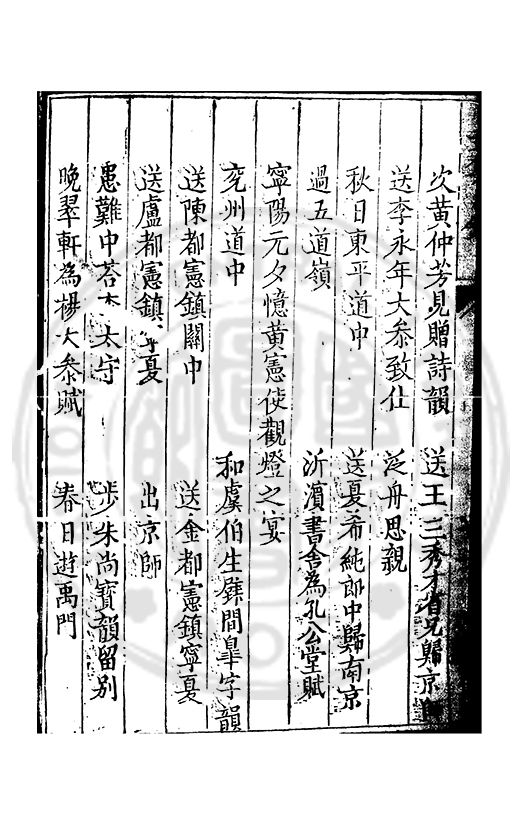 次黄仲芳見贈詩韻　送王三秀才省兄歸京師
送李永年大叅致仕　泛舟思親
秋日東平道中　送夏希純郎中歸南京
過五道嶺　沂濵書舎為孔公堂賦
寧陽元夕憶黄憲使觀燈之宴
兖州道中　和虞伯生壁間臯字韻
送陳都憲鎮關中　送金都憲鎮寧夏
送盧都憲鎮寧夏　出京師
患難中荅李太守　步朱尚寳韻留别
晚翠軒為楊大叅賦　春日遊禹門